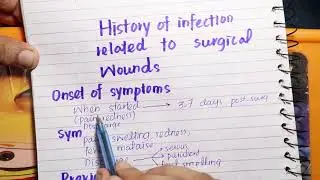 History of infection
related to surgical
Wounds
Onset of symptoms
When started → 3-7 days post-surg
(Pain, redness)
Discharge
Sym
pain, swelling, redness,
fever, malaise
Dis
serous
purulent
foul smelling
Previ